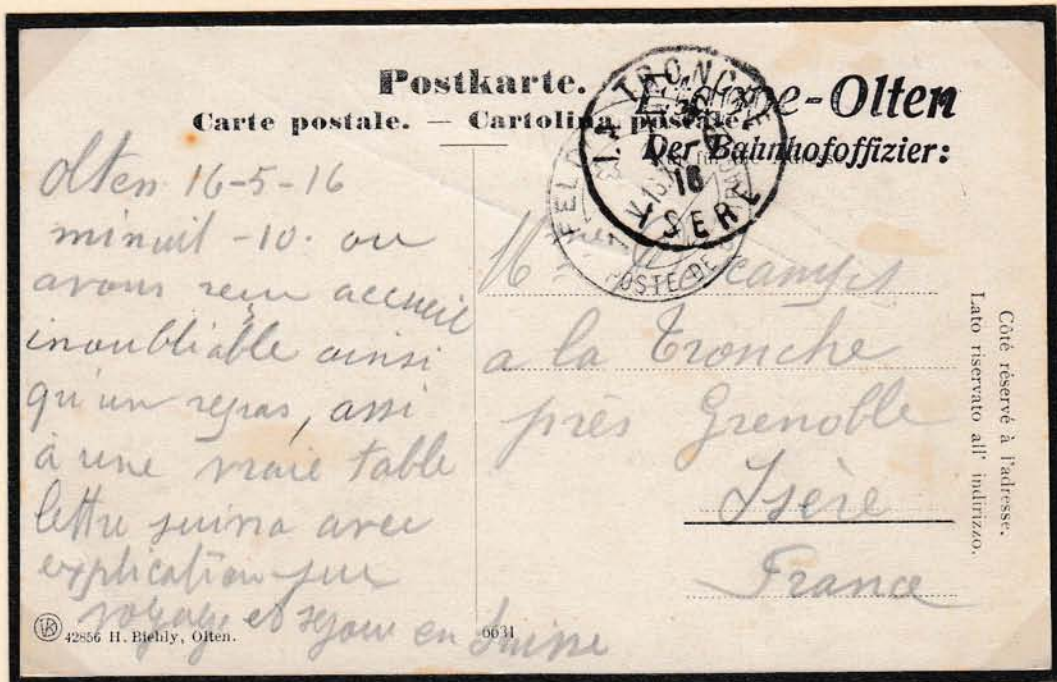 Postkarte.
Carte postale. — Cartolina postale.
Etappe-Olten
Der Bahnhofoffizier:
LA TRONCHE
16
ISERE
FELD
POSTE DE
Olten 16-5-16
minuit -10. ou
avons reçu accueil
inoubliable ainsi
qu'un repas, assi
à une vraie table
lettre suivra avec
explication sur
voyage et sejour en Suisse
Mme
a la Tronche
près Grenoble
Isère
France
Côté réservé à l'adresse.
Lato riservato all' indirizzo.
42856 H. Biehly, Olten.
6631